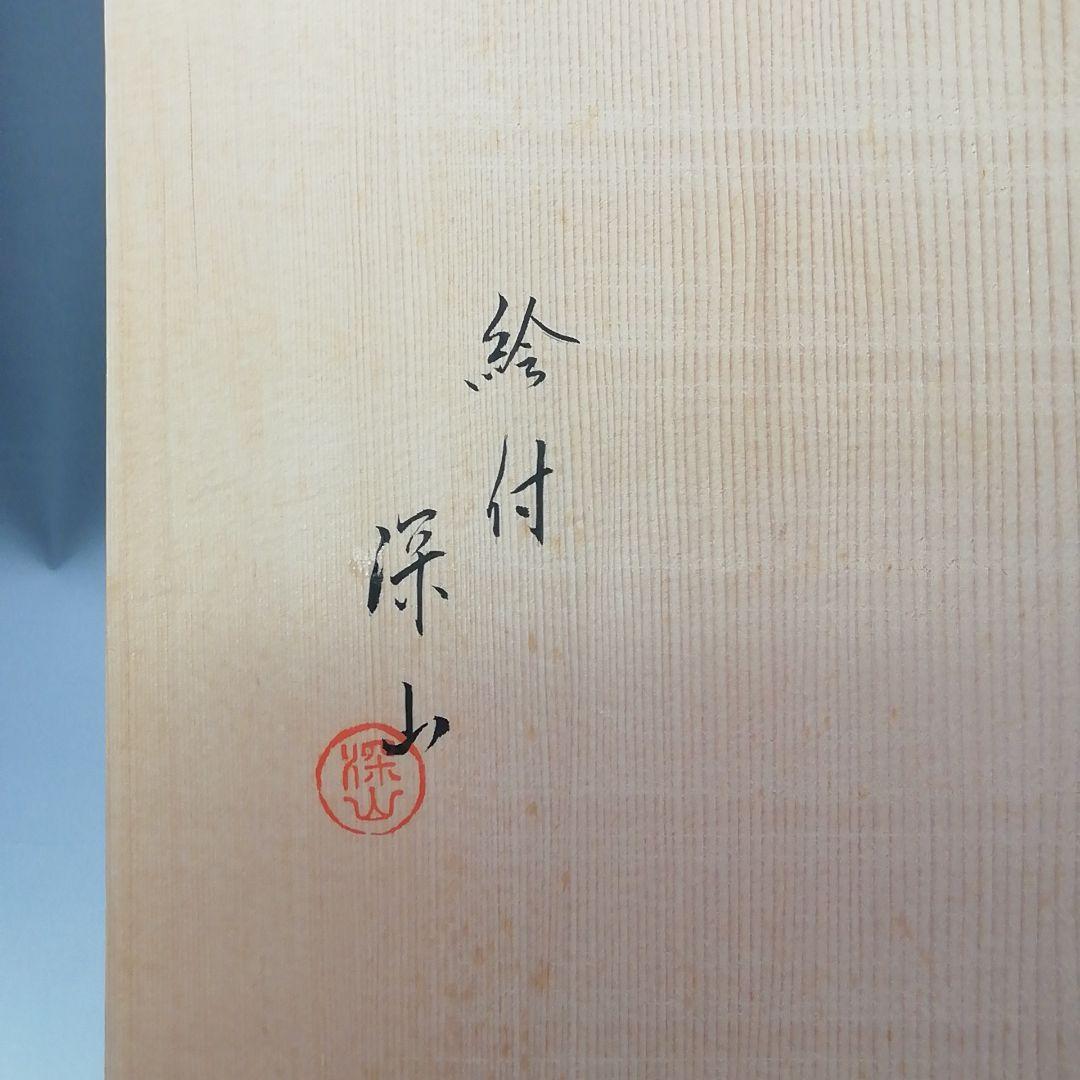 絵付
深山
深山